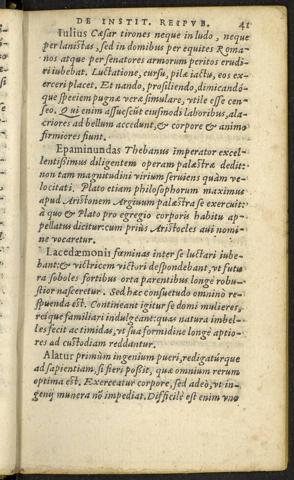 DE INSTIT. REIPVB. 41
Iulius Cæsar tirones neque in ludo, neque
per lanistas, sed in domibus per equites Roma-
nos atque per senatores armorum peritos erudi-
ri iubebat. Luctatione, cursu, pilæ iactu, eos ex-
erceri placet. Et nando, prosiliendo, dimicandó-
que speciem pugnæ veræ simulare, vtile esse cen-
seo. Qui enim assuescūt eiusmodi laboribus, ala-
criores ad bellum accedunt, & corpore & animo
firmiores fiunt.
Epaminundas Thebanus imperator excel-
lentissimus diligentem operam palæstræ dedit:
non tam magnitudini virium seruiens quàm ve-
locitati. Plato etiam philosophorum maximus
apud Aristonem Argiuum palæstra se exercuit:
à quo & Plato pro egregio corporis habitu ap-
pellatus dicitur: cum priùs Aristocles aui nomi-
ne vocaretur.
Lacedæmonii fœminas inter se luctari iube-
bant: & victricem victori despondebant, vt futu
ra soboles fortibus orta parentibus longè robu-
stior nasceretur. Sed hæc consuetudo omnino re-
spuenda est. Contineant igitur se domi mulieres,
reíque familiari indulgeant: quas natura imbel-
les fecit ac timidas, vt sua formidine longè aptio-
res ad custodiam reddantur.
Alatur primùm ingenium pueri, redigatúrque
ad sapientiam, si fieri possit, quæ omnium rerum
optima est. Exerceatur corpore, sed adeò, vt in-
genij munera nō impediat. Difficilè est enim vno